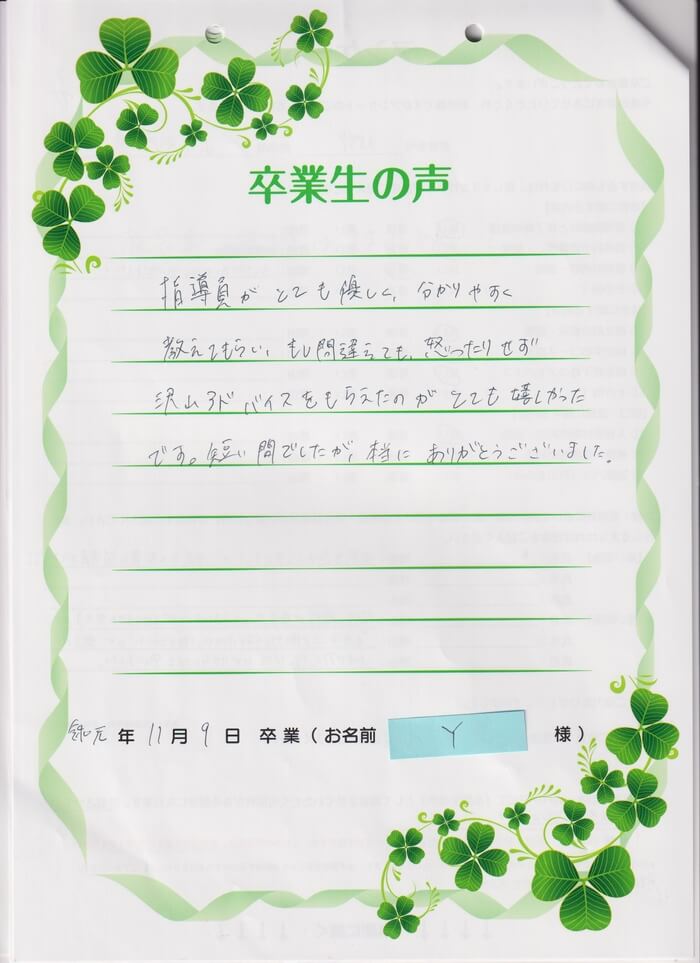 卒業生の声
指導員がとても優しく、分かりやすく
教えてもらい、もし間違えても、怒ったりせず
沢山アドバイスをもらえたのがとても嬉しかった
です。短い間でしたが、本当にありがとうございました。
令和元年11月9日 卒業(お名前 Y 様)